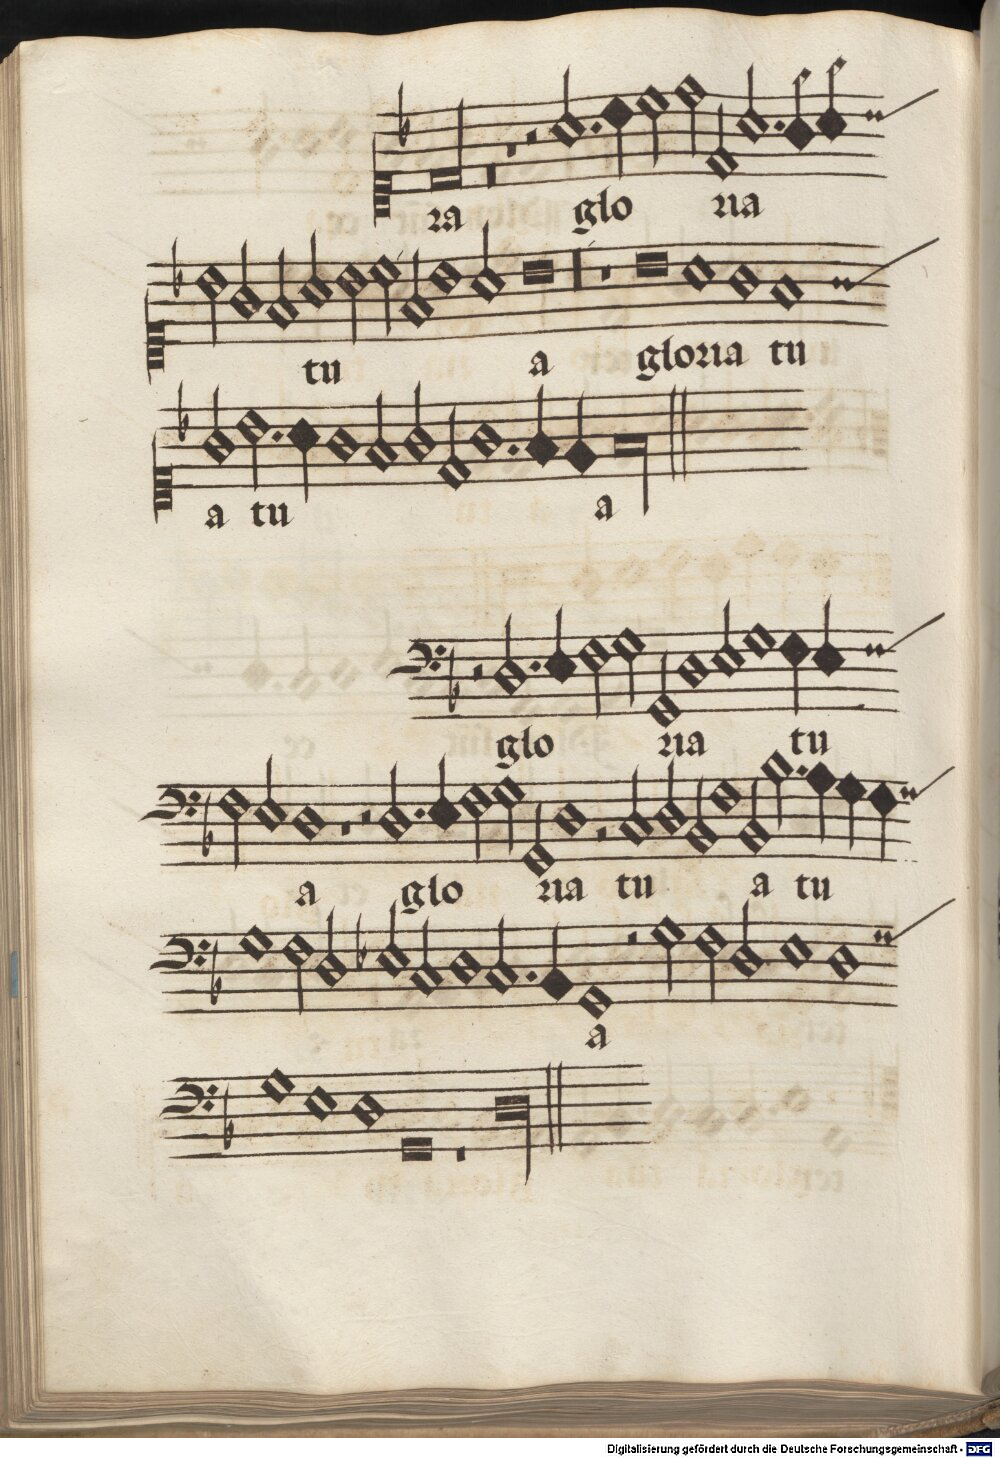 ra glo ria
tu a gloria tu
a tu a
glo ria tu
a glo ria tu a tu
a
Digitalisierung gefördert durch die Deutsche Forschungsgemeinschaft - DFG